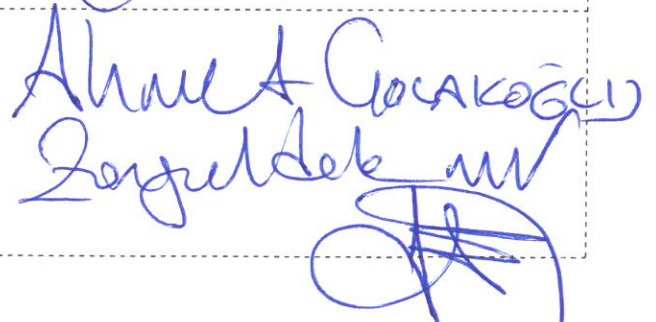 Ahmet ÇOLAKOĞLU
Zonguldak MV